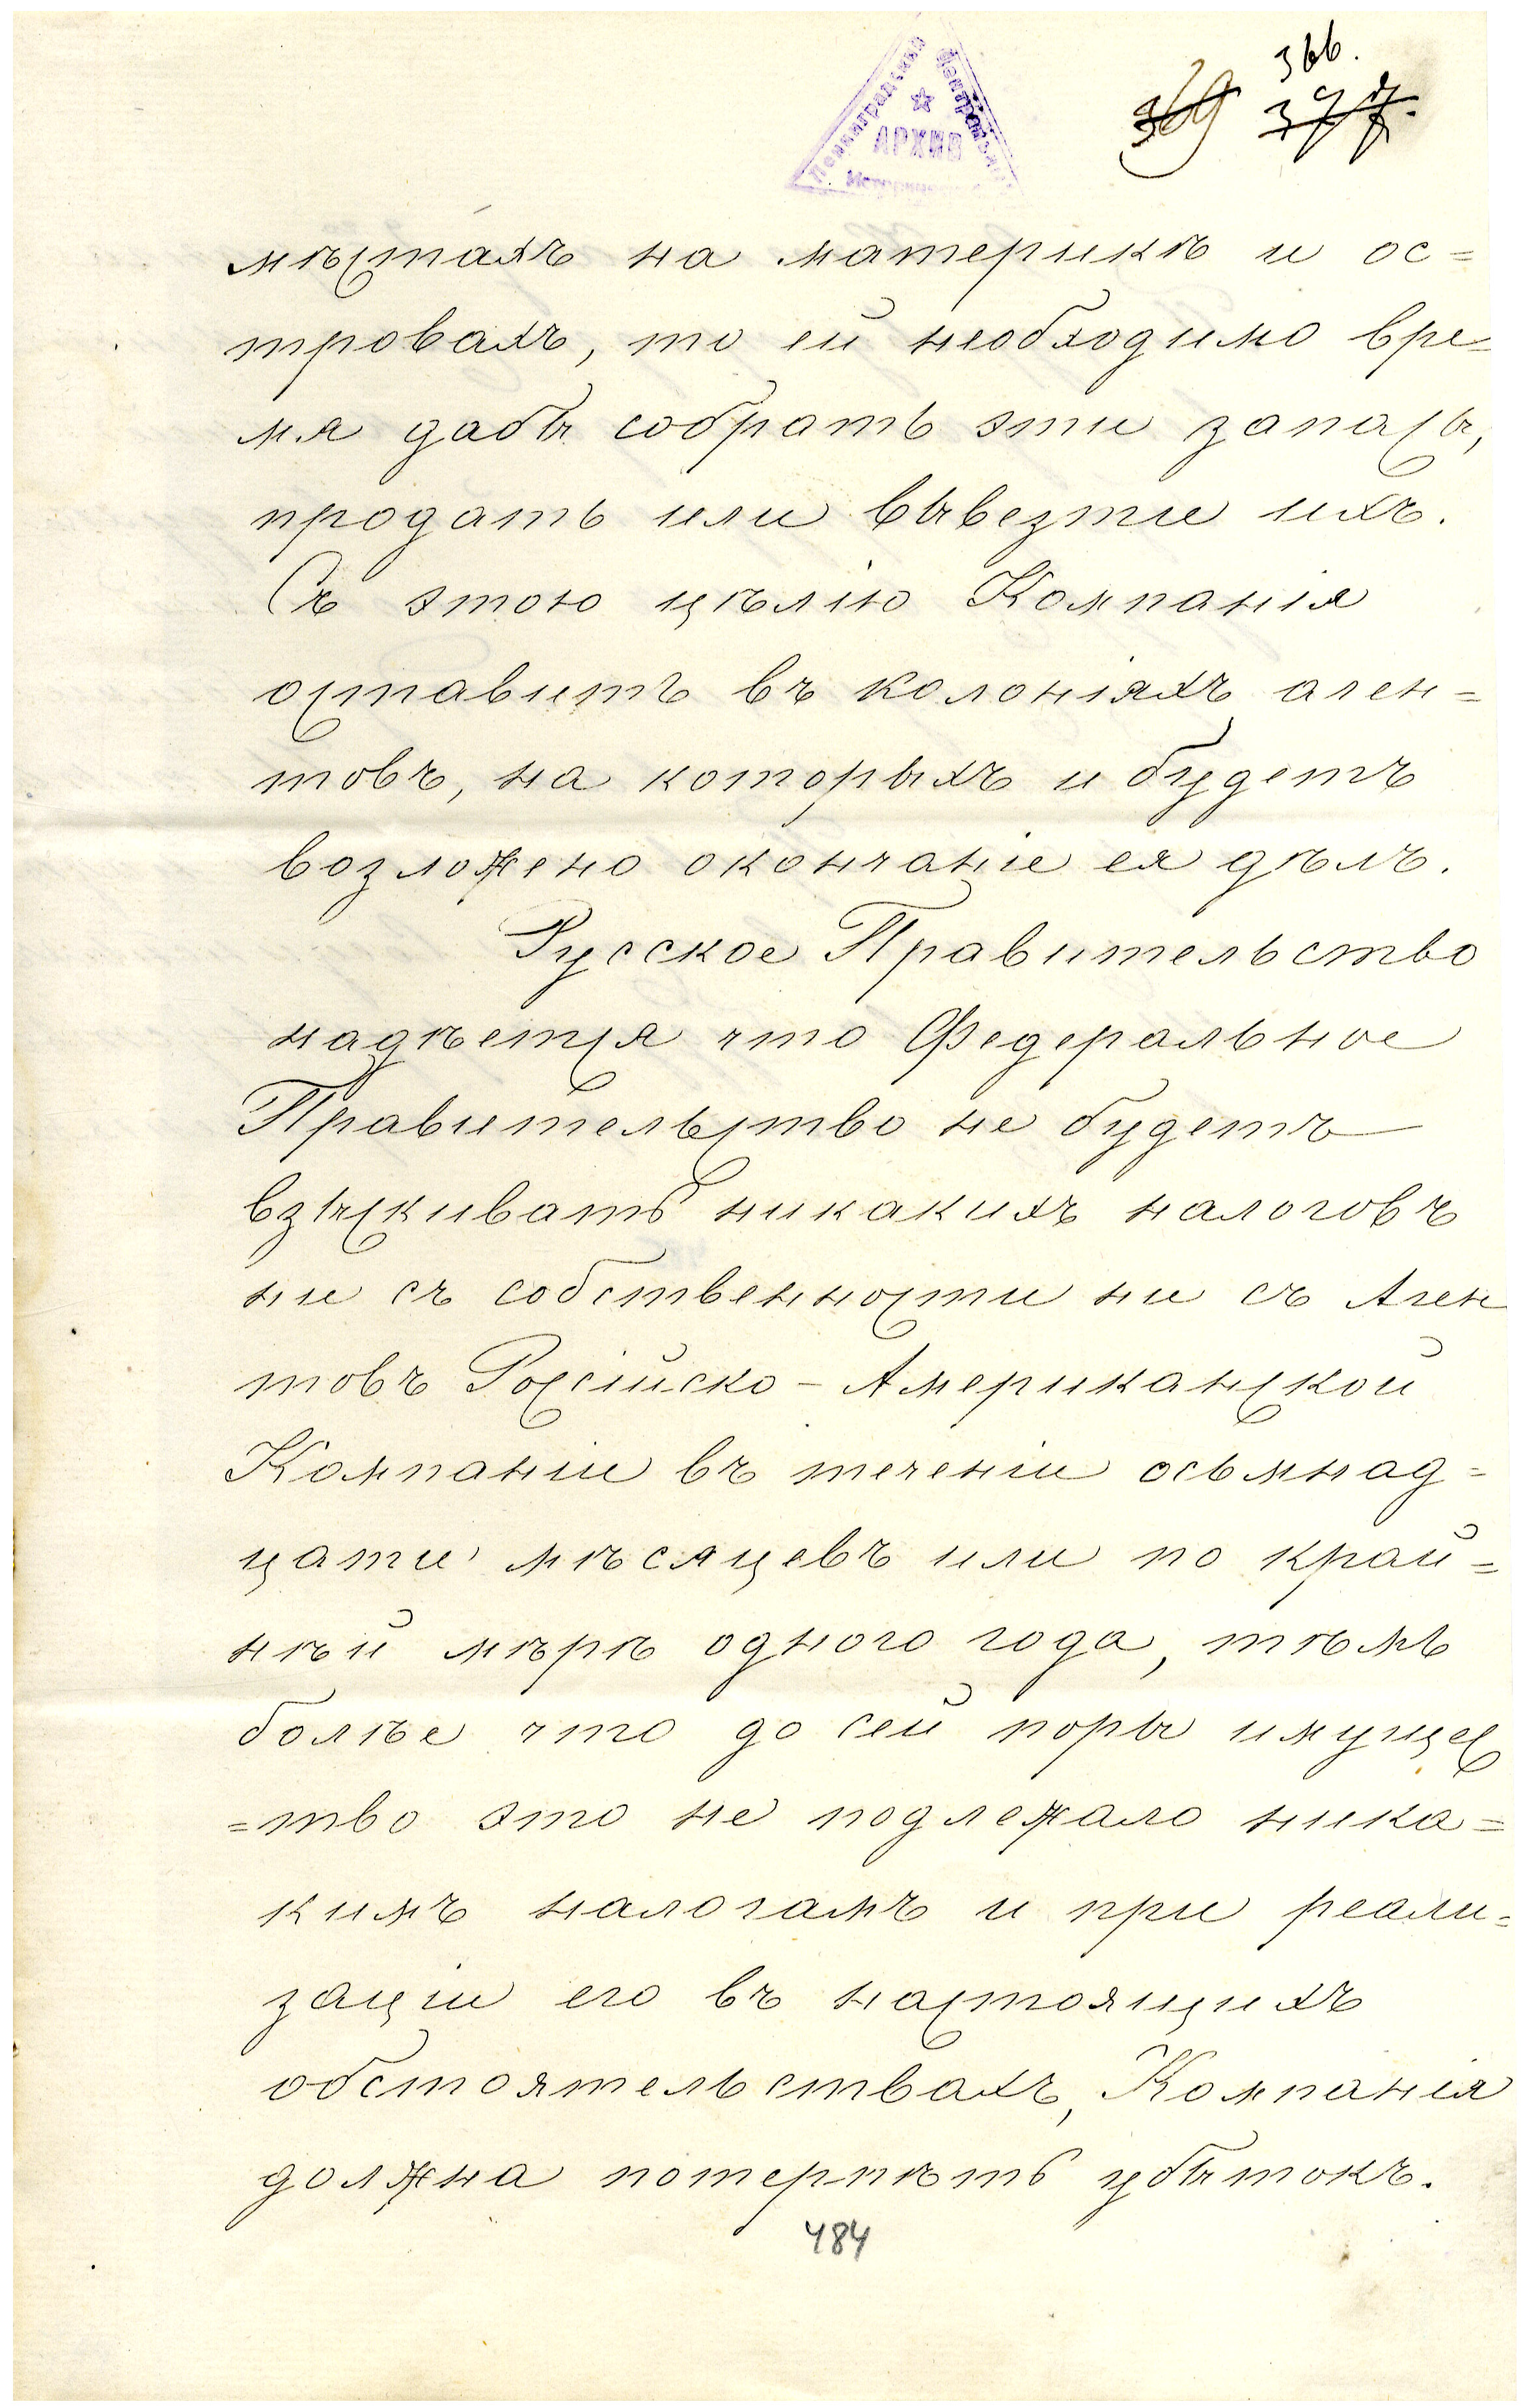 366.
369 377.
Ленинградский
АРХИВ
мѣстахъ на материкѣ и ос=
тровахъ, то ей необходимо вре=
мя дабы собрать эти запасы,
продать или вывезти ихъ.
Съ этою цѣлію Компанія
оставитъ въ колоніяхъ аген=
товъ, на которыхъ и будетъ
возложено окончаніе ея дѣлъ.
Русское Правительство
надѣется что Федеральное
Правительство не будетъ
взыскивать никакихъ налоговъ
ни съ собственности ни съ Аген
товъ Россійско-Американской
Компаніи въ теченіи осьмнад=
цати мѣсяцевъ или по край=
нѣй мѣрѣ одного года, тѣмъ
болѣе что до сей поры имущес
=тво это не подлежало ника=
кимъ налогамъ и при реали=
заціи его въ настоящихъ
обстоятельствахъ, Компанія
должна потерпѣть убытокъ.
484